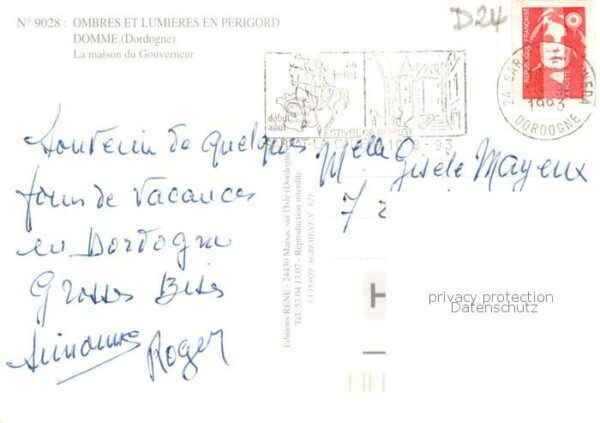 N° 9028 : OMBRES ET LUMIERES EN PERIGORD
DOMME (Dordogne)
La maison du Gouverneur
D24
REPUBLIQUE FRANÇAISE
LA POSTE
24
1993
DORDOGNE
fin
juillet
début
août
FESTIVAL DE
-93
Souvenir de quelques
jours de Vacances
en Dordogne
Grosses Bises
Roger
Melle Gisèle Mayeux
7
Editions RENE - 24430 Marsac sur l'Isle (Dordogne)
Tél. 53.04.13.07 - Reproduction interdite
LA POSTE AGREMENT N° 121
H
privacy protection
Datenschutz